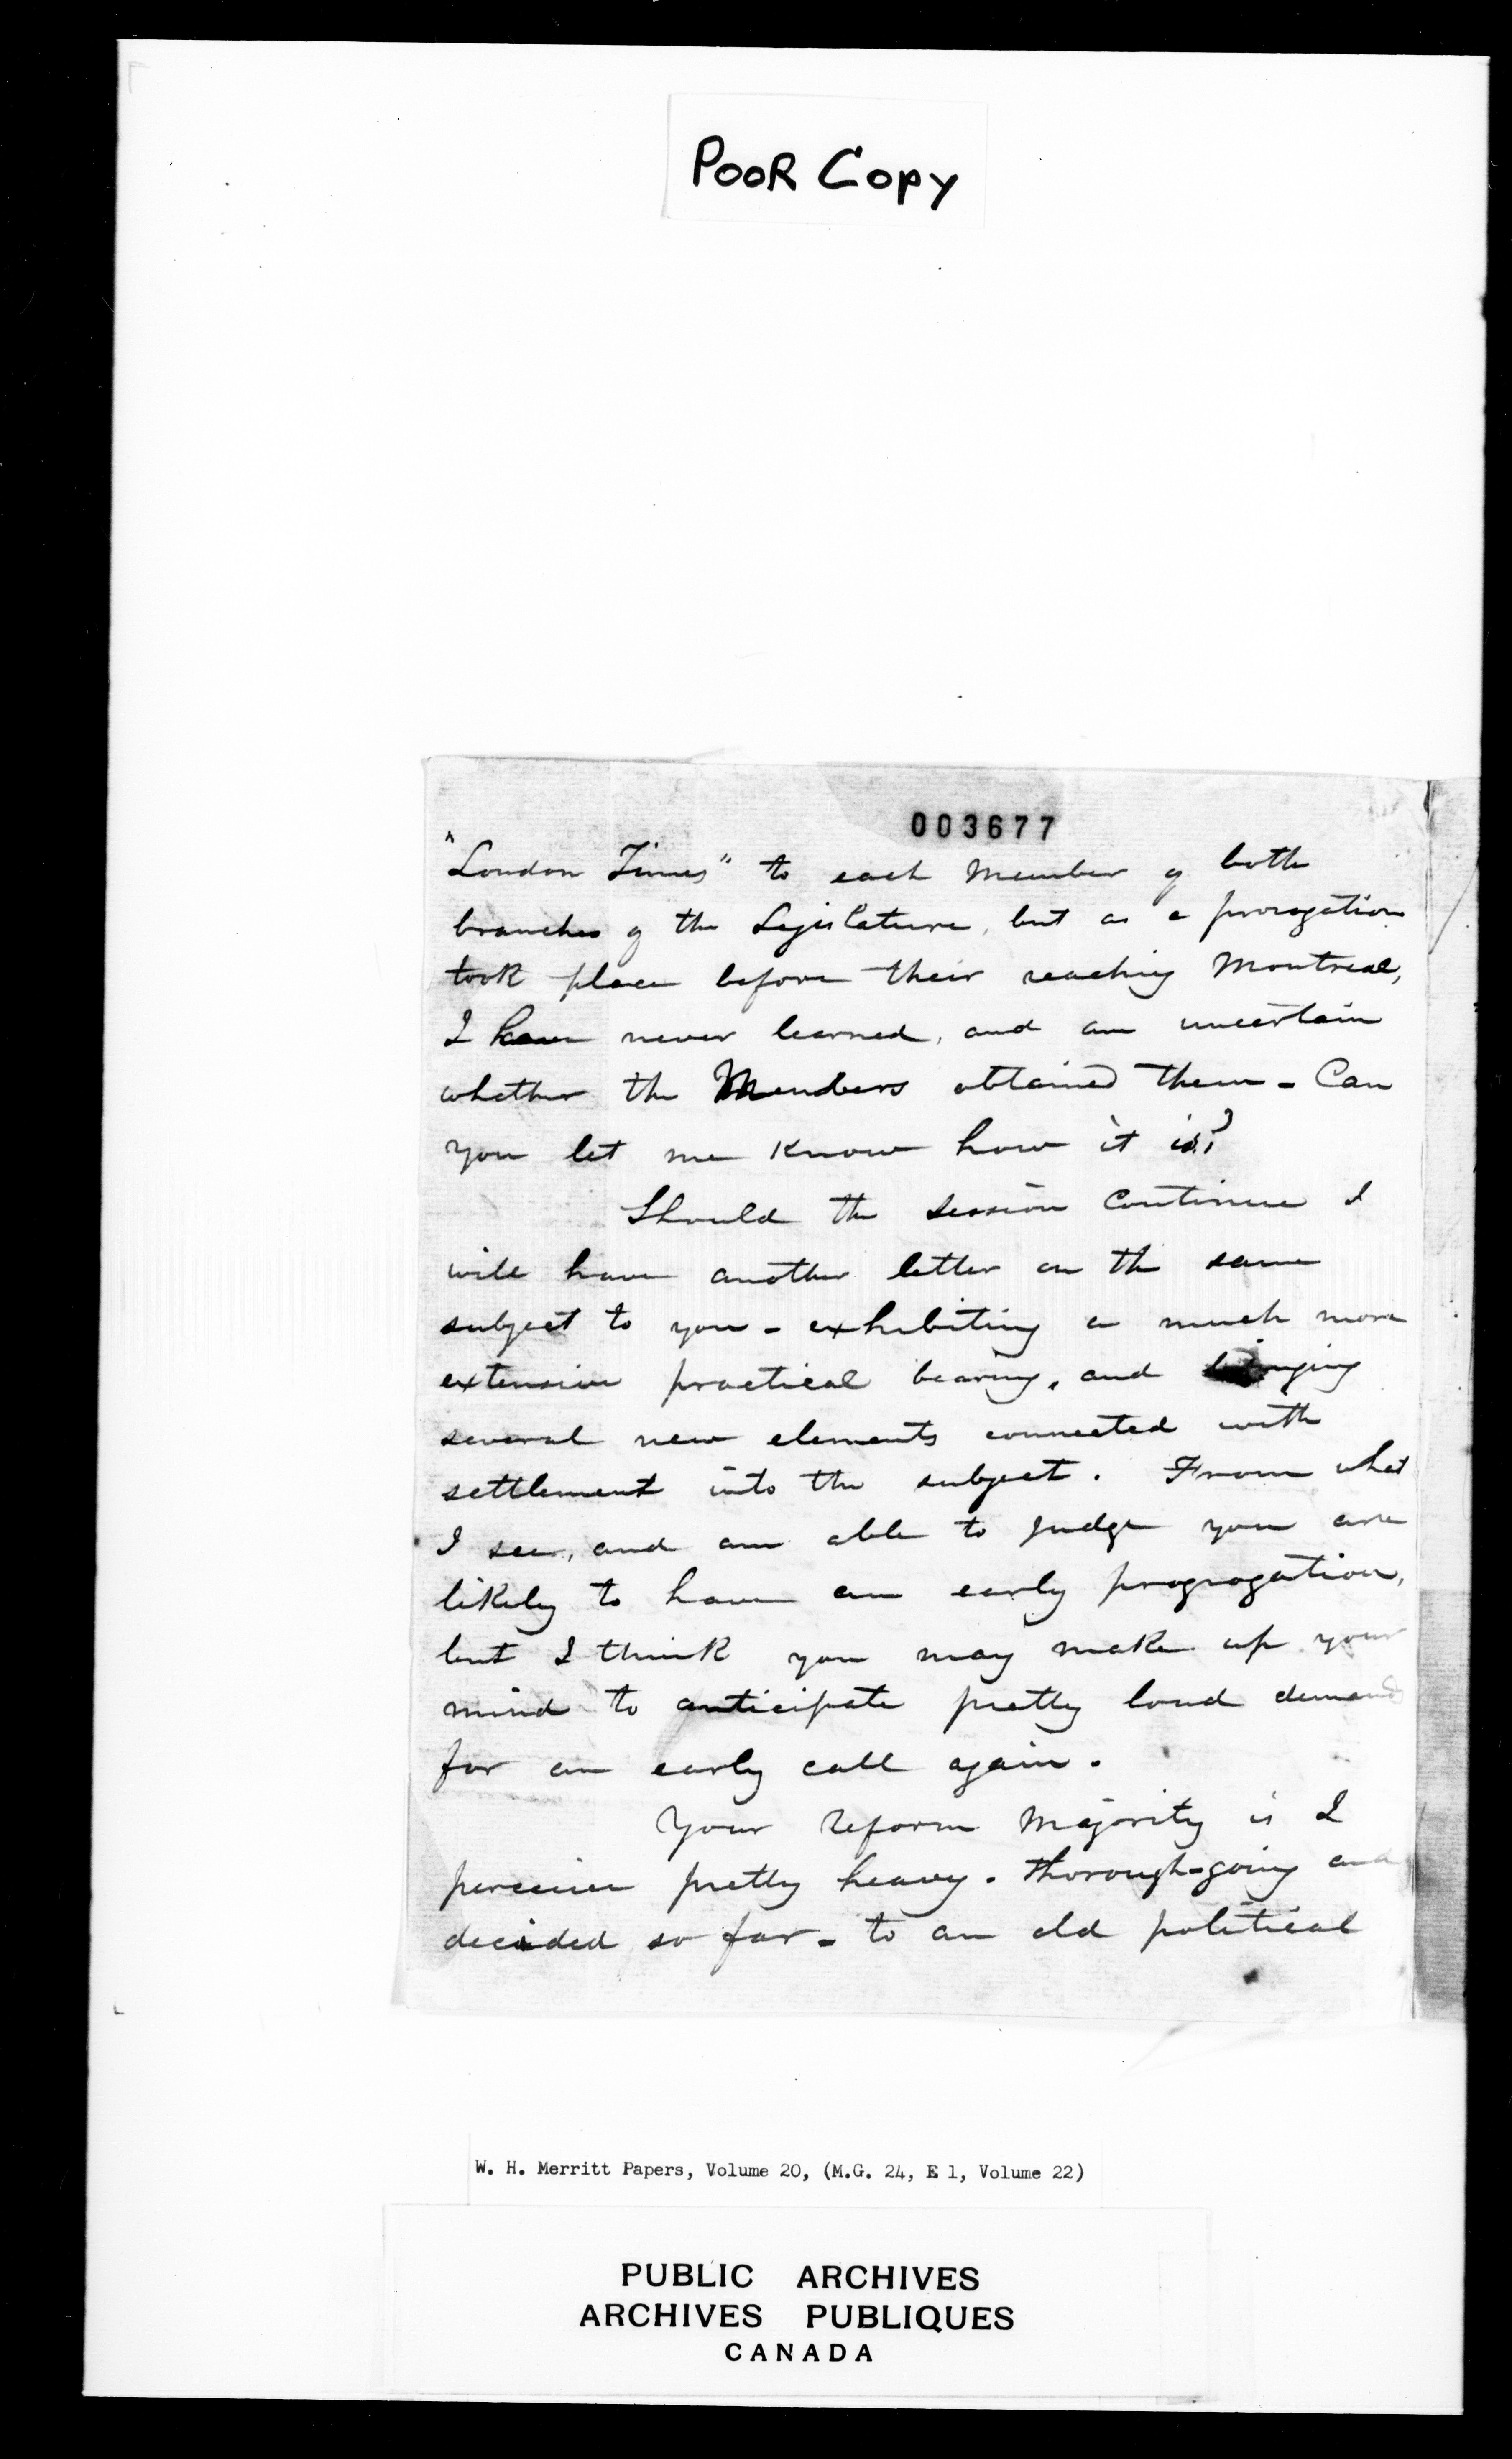 POOR COPY
003677
"London Times" to each Member of both
branches of the Legislature, but as a prorogation
took place before their reaching Montreal,
I have never learned, and am uncertain
whether the Members obtained them - Can
you let me know how it is?
Should the session continue I
will have another letter on the same
subject to you - exhibiting a much more
extensive practical bearing, and bringing
several new elements connected with
settlement into the subject. From what
I see, and am able to judge you are
likely to have an early progrogation,
but I think you may make up your
mind to anticipate pretty loud demands
for an early call again.
Your reform Majority is I
perceive pretty heavy. thorough-going and
decided so far - to an old political
W. H. Merritt Papers, Volume 20, (M.G. 24, E 1, Volume 22)
PUBLIC ARCHIVES
ARCHIVES PUBLIQUES
CANADA